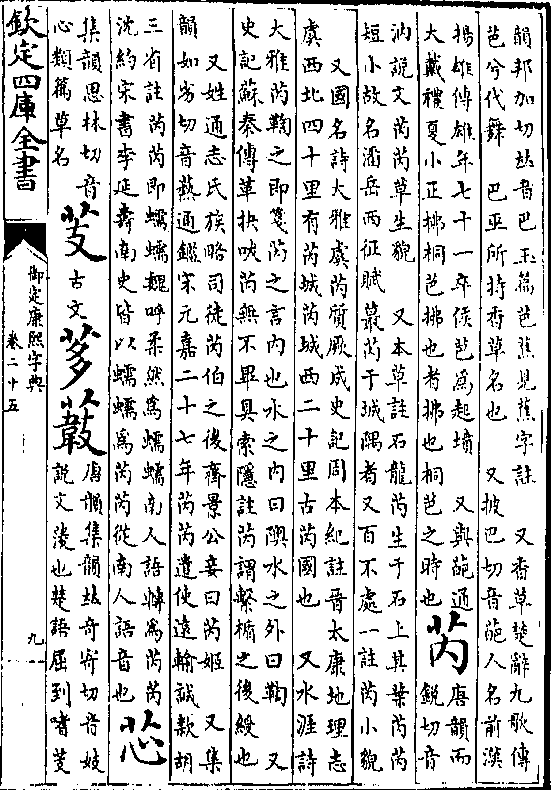 韻邦加切𠀤音巴玉篇芭蕉見蕉字註　又香草楚辭九歌傳
芭兮代舞　巴巫所持香草名也　又披巴切音葩人名前漢
揚雄傳雄年七十一卒侯芭為起墳　又與葩通
大戴禮夏小正拂桐芭拂也者拂也桐芭之時也　芮　唐韻而
銳切音
汭說文芮芮草生貌　又本草註石龍芮生于石上其葉芮芮
短小故名潘岳西征賦蕞芮于城隅者又百不處一註芮小貌
又國名詩大雅虞芮質厥成史記周本紀註晉太康地理志
虞西北四十里有芮城芮城西二十里古芮國也　又水涯詩
大雅芮鞫之即箋芮之言內也水之內曰隩水之外曰鞫　又
史記蘇秦傳革抉㕹芮無不畢具索隱註芮謂繫楯之後綬也
又姓通志氏族略司徒芮伯之後齊景公妾曰芮姬　又集
韻如劣切音爇通鑑宋元嘉二十七年芮芮遣使遠輸誠款胡
三省註芮芮即蠕蠕魏呼柔然為蠕蠕南人語轉為芮芮
沈約宋書李延壽南史皆以蠕蠕為芮芮從南人語音也　芯
集韻思林切音
心類篇草名　芰　古文　茤　䕍　唐韻集韻𠀤奇寄切音妓
說文蔆也楚語屈到嗜芰
欽定四庫全書
御定康熙字典
卷二十五
九